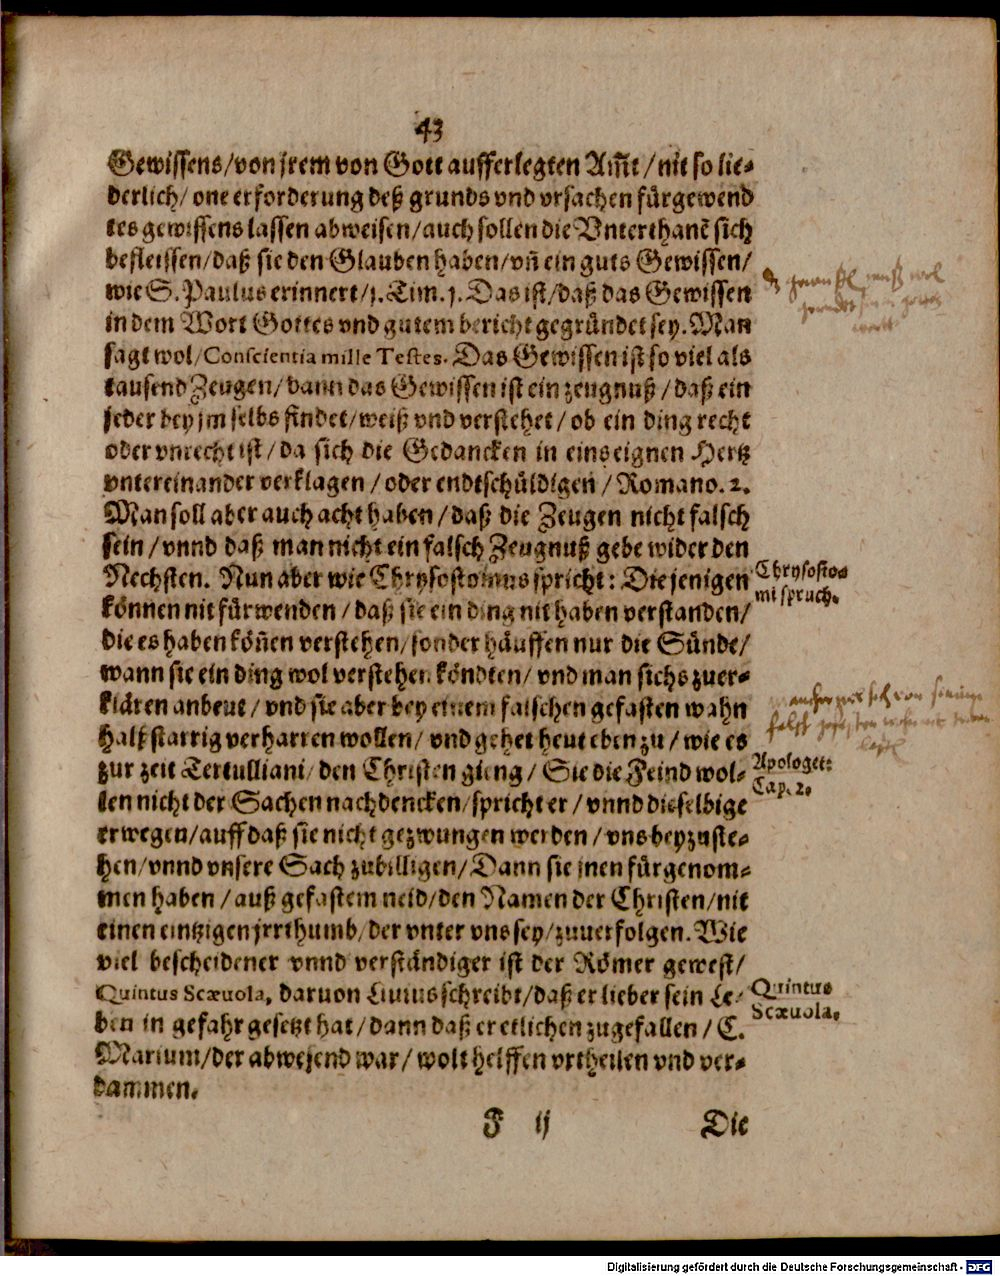 43
Gewissens/von jrem von Gott aufferlegten Am̃t/nit so lie-
derlich/one erforderung deß grunds vnd vrsachen fürgewend
tes gewissens lassen abweisen/auch sollen die Vnterthanẽ sich
befleissen/daß sie den Glauben haben/vñ ein guts Gewissen/
wie S. Paulus erinnert/1. Tim. 1. Das ist/daß das Gewissen
in dem Wort Gottes vnd gutem bericht gegründet sey. Man
sagt wol/Conscientia mille Testes. Das Gewissen ist so viel als
tausend Zeugen/dann das Gewissen ist ein zeugnuß/daß ein
jeder bey jm selbs findet/weiß vnd verstehet/ob ein ding recht
oder vnrecht ist/da sich die Gedancken in eins eignen Hertz
vntereinander verklagen/oder endtschüldigen/Romano. 2.
Man soll aber auch acht haben/daß die Zeugen nicht falsch
sein/vnnd daß man nicht ein falsch Zeugnuß gebe wider den
Nechsten. Nun aber wie Chrysostomus spricht: Die jenigen
Chrysosto-
mi spruch.
können nit fürwenden/daß sie ein ding nit haben verstanden/
die es haben köñen verstehen/sonder häuffen nur die Sünde/
wann sie ein ding wol verstehen köndten/vnd man sichs zuer-
klären anbeut/vnd sie aber bey einem falschen gefasten wahn
halßstarrig verharren wollen/vnd gehet heut eben zu/wie es
zur zeit Tertulliani/den Christen gieng/Sie die Feind wol-
Apologet:
Cap. 2.
len nicht der Sachen nachdencken/spricht er/vnnd dieselbige
erwegen/auff daß sie nicht gezwungen werden/vns beyzuste-
hen/vnnd vnsere Sach zubilligen/Dann sie jnen fürgenom-
men haben/auß gefastem neid/den Namen der Christen/nit
einen eintzigen jrrthumb/der vnter vns sey/zuuerfolgen. Wie
viel bescheidener vnnd verständiger ist der Römer gewest/
Quintus Scæuola, daruon Liuius schreibt/daß er lieber sein Le-
Quintus
Scæuola.
ben in gefahr gesetzt hat/dann daß er etlichen zugefallen/C.
Marium/der abwesend war/wolt helffen vrtheilen vnd ver-
dammen.
F ij Die
Digitalisierung gefördert durch die Deutsche Forschungsgemeinschaft - DFG